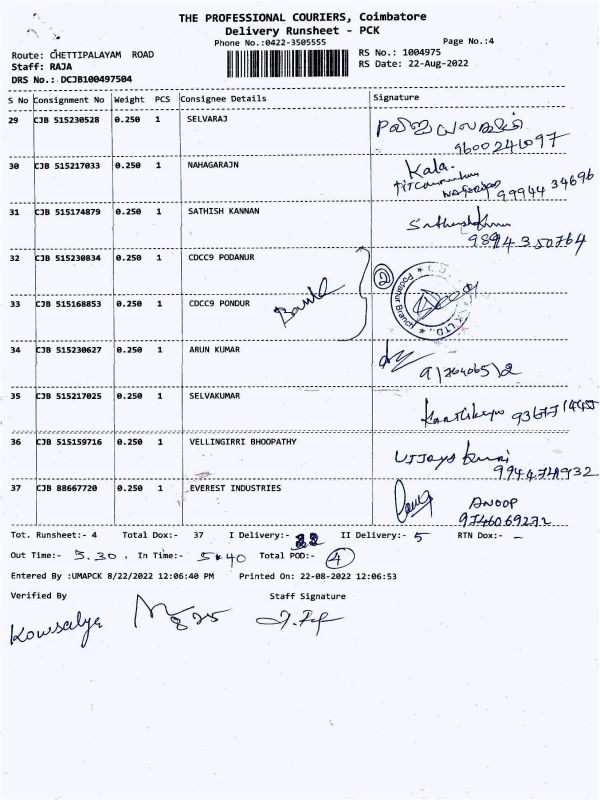 THE PROFESSIONAL COURIERS, Coimbatore
Delivery Runsheet - PCK
Phone No.:0422-3505555
Page No.:4
Route: CHETTIPALAYAM ROAD
RS No.: 1004975
Staff: RAJA
RS Date: 22-Aug-2022
DRS No.: DCJB100497504
S No Consignment No Weight PCS Consignee Details Signature
29 CJB 515230528 0.250 1 SELVARAJ
9600241097
30 CJB 515217033 0.250 1 NAHAGARAJN Kala.
99944 34696
31 CJB 515174879 0.250 1 SATHISH KANNAN
98943 50764
32 CJB 515230834 0.250 1 CDCC9 PODANUR
2
Bank
Podanur Branch
33 CJB 515168853 0.250 1 CDCC9 PONDUR
34 CJB 515230627 0.250 1 ARUN KUMAR
35 CJB 515217025 0.250 1 SELVAKUMAR
36 CJB 515159716 0.250 1 VELLINGIRRI BHOOPATHY
37 CJB 88667720 0.250 1 EVEREST INDUSTRIES
ANOOP
9746069272
Tot. Runsheet:- 4 Total Dox:- 37 I Delivery:- II Delivery:- 5 RTN Dox:- -
Out Time:- 5.30. In Time:- 5*40 Total POD:- 4
Entered By :UMAPCK 8/22/2022 12:06:40 PM Printed On: 22-08-2022 12:06:53
Verified By Staff Signature
Kowsalya